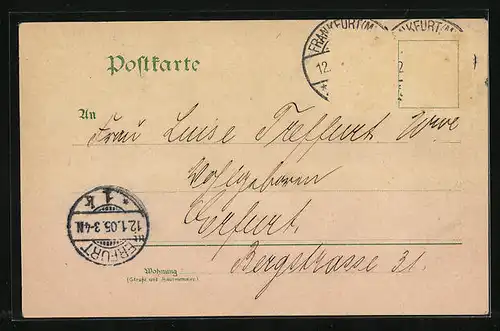 FRANKFURT (M. FRANKFURT (M.
12 2
Postkarte
An
Frau Luise Treffurt Wwe
Wohlgeboren
Erfurt.
Bergstrasse 31.
ERFURT
12.1.05.3-4N.
* 1 k
Wohnung
(Straße und Hausnummer)